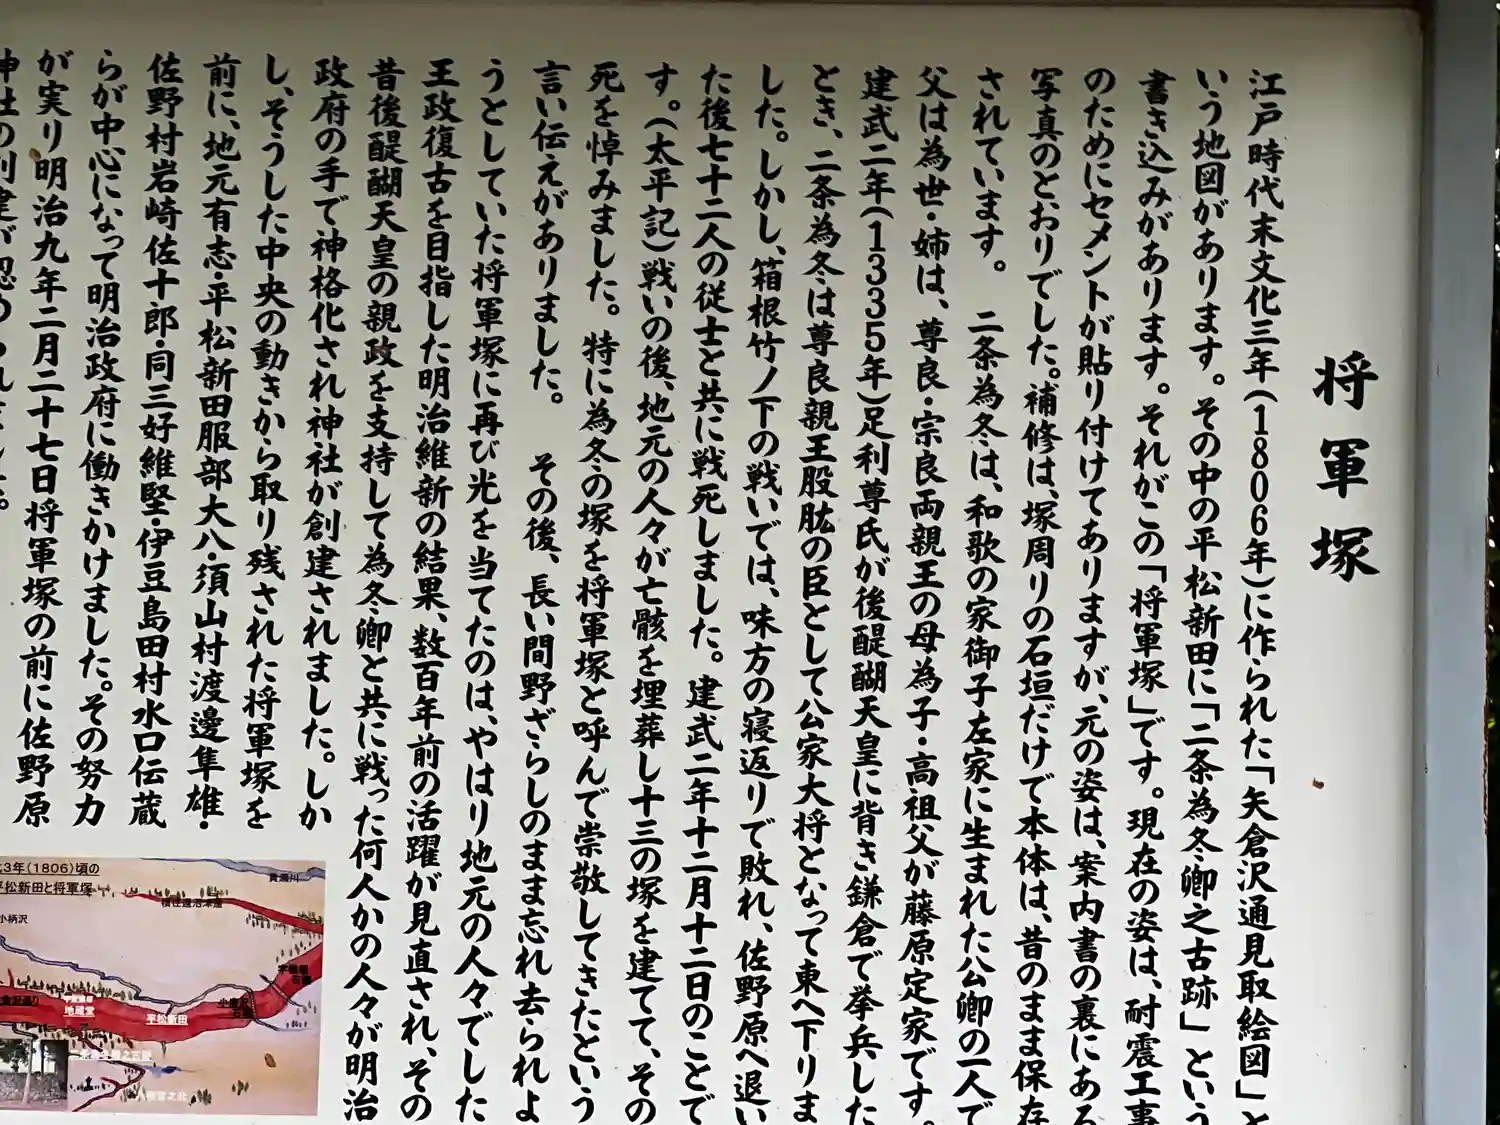 将軍塚
江戸時代末文化三年(1806年)に作られた「矢倉沢通見取絵図」と
いう地図があります。その中の平松新田に「二条為冬卿之古跡」という
書き込みがあります。それがこの「将軍塚」です。現在の姿は、耐震工事
のためにセメントが貼り付けてありますが、元の姿は、案内書の裏にある
写真のとおりでした。補修は、塚周りの石垣だけで本体は、昔のまま保存
されています。 二条為冬は、和歌の家御子左家に生まれた公卿の一人で
父は為世・姉は、尊良・宗良両親王の母為子・高祖父が藤原定家です。
建武二年(1335年)足利尊氏が後醍醐天皇に背き鎌倉で挙兵した
とき、二条為冬は尊良親王股肱の臣として公家大将となって東へ下りま
した。しかし、箱根竹ノ下の戦いでは、味方の寝返りで敗れ、佐野原へ退い
た後七十二人の従士と共に戦死しました。建武二年十二月十二日のことで
す。(太平記)戦いの後、地元の人々が亡骸を埋葬し十三の塚を建てて、その
死を悼みました。特に為冬の塚を将軍塚と呼んで崇敬してきたという
言い伝えがありました。 その後、長い間野ざらしのまま忘れ去られよ
うとしていた将軍塚に再び光を当てたのは、やはり地元の人々でした
王政復古を目指した明治維新の結果、数百年前の活躍が見直され、その
昔後醍醐天皇の親政を支持して為冬卿と共に戦った何人かの人々が明治
政府の手で神格化され神社が創建されました。しか
し、そうした中央の動きから取り残された将軍塚を
前に、地元有志・平松新田服部大八・須山村渡邊隼雄・
佐野村岩崎佐十郎・同三好維堅・伊豆島田村水口伝蔵
らが中心になって明治政府に働きかけました。その努力
が実り明治九年二月二十七日将軍塚の前に佐野原
神社の創建が認められました。
化3年(1806)頃の
平松新田と将軍塚
小柄沢
黄瀬川
地蔵堂
平松新田